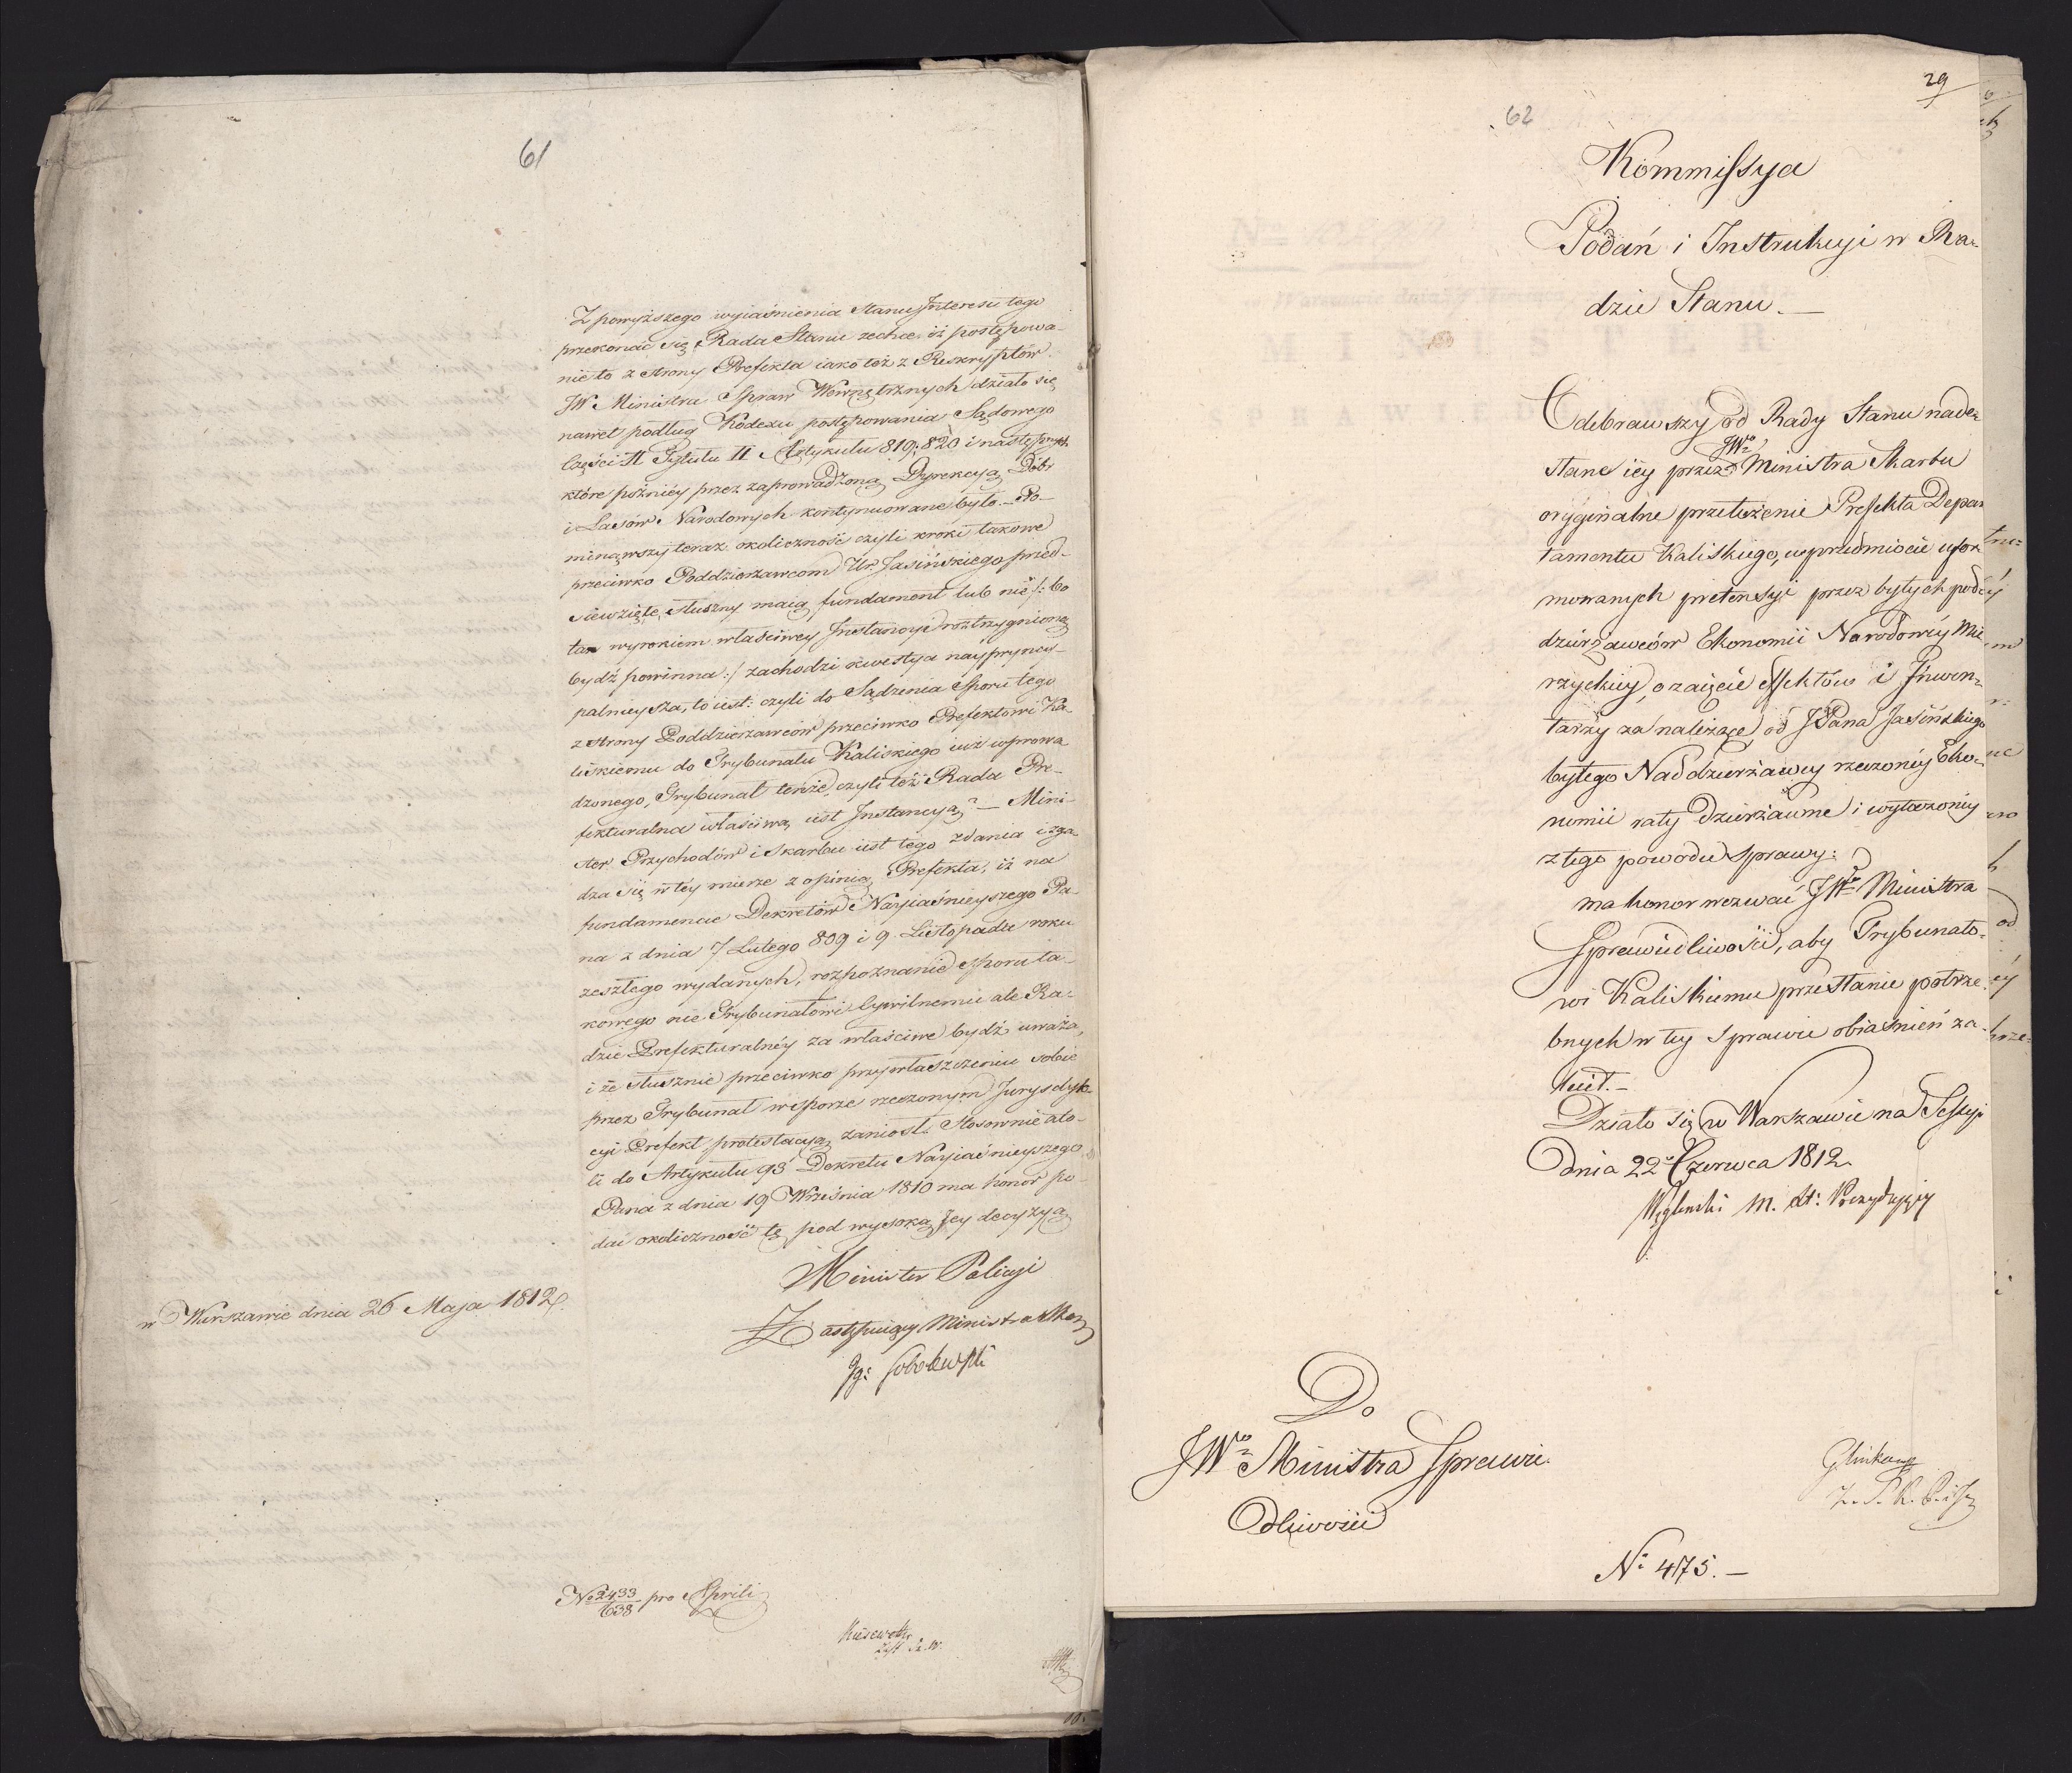 61
Z powyższego wyiaśnienia Stanu Interesu tego
przekonać się Rada Stanu zechce, iż postępowa-
nie to z strony Prefekta iako też z Reskryptów
JW Ministra Spraw Wewnętrznych działo się
nawet podług Kodexu postępowania Sądowego
Części II Tytułu II Artykułu 819, 820 i następnych
które późniéy przez zaprowadzoną Dyrekcyą Dóbr
i Lasów Narodowych kontynuowane było. – Po-
minąwszy teraz okoliczność czyli kroki takowe
przeciwko Poddzierżawcom Ur. Jasińskiego przed-
siewzięte, słuszny maią fundament lub nie /: bo
ta wyrokiem właściwey Instancyi rozstrzygnioną
bydź powinna :/ zachodzi kwestya naypryncy-
palnieysza, to iest: czyli do Sądzenia Sporu tego
z strony Poddzierzawców przeciwko Prefektowi Ka-
liskiemu do Trybunału Kaliskiego iuż wprowa-
dzonego, Trybunał tenże, czyli też Rada Pre-
fekturalna właściwą iest Instancyą? – Mini-
ster Przychodów i Skarbu iest tego zdania i zga-
dza się w téy mierze z opinią Prefekta, iż na
fundamencie Dekretów Nayiaśnieyszego Pa-
na z dnia 7 Lutego 809 i 9 Listopada roku
zeszłego wydanych, rozpoznanie sporu ta-
kowego nie Trybunałowi Cywilnemu ale Ra-
dzie Prefekturalnéy za właściwe bydź uważa,
i że słusznie przeciwko przywłaszczeniu sobie
przez Trybunał w sporze rzeczonym Jurysdyk-
cyi Prefekt protestacyą zaniosł. Stosownie ato-
li do Artykułu 93 Dekretu Nayiaśnieyszego
Pana z dnia 19 Września 1810 ma honor po-
dać okoliczność tę pod wysoką Jey decyzyą
Minister Policyi
Zastępuiący Ministra Skarbu
Ig: Sobolewski
w Warszawie dnia 26 Maja 1812.
No 2433/638 pro Aprili
29
62
Kommissya
Podań i Instrukcyi w Ra-
dzie Stanu. –
Odebrawszy od Rady Stanu nade-
słane iéy przez JWo Ministra Skarbu
oryginalne przełożenie Prefekta Depar
tamentu Kaliskiego, w przedmiocie ufor
mowanych pretensyi przez byłych pod-
dzierżawców Ekonomii Narodowéy Mie
rzyckiéy, o zaięcie effektów i Inwen-
tarzy za należące od JPana Jasińskiego
byłego Naddzierżawcy rzeczonéy Eko-
nomii raty dzierżawne i wytoczonéy
z tego powodu sprawy:
ma honor wezwać JWo Ministra
Sprawiedliwości, aby Trybunało-
wi Kaliskiemu przesłanie potrze-
bnych w téy sprawie obiaśnień za-
lecił. –
Działo się w Warszawie na Sessyi
dnia 22 Czerwca 1812.
Węgleński M. St: Prezyduiący
Do
JWo Ministra Sprawie-
dliwości
Glinka
No 475. –